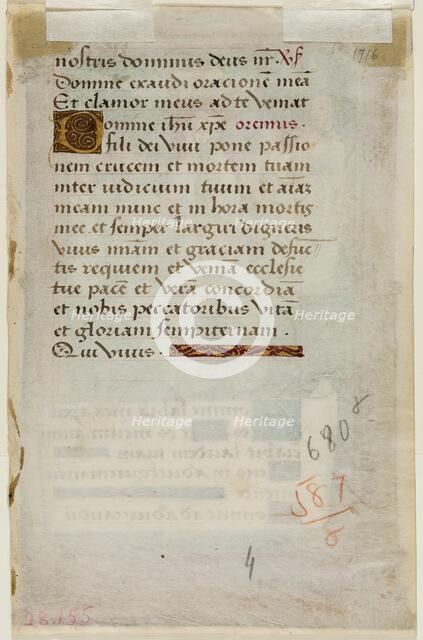 nostris dominus deus nr̄. V̸s
Domine exaudi oracionē meā
Et clamor meus ad te veniat
Domine ihū xp̄e oremus.
fili dei vivi pone passio
nem crucem et mortem tuam
inter iudicium tuum et aīaz
meam nunc et in hora mortis
mee. et semper largiri digneris
vivis m̄iam et graciam defūc
tis requiem et veniā ecclesie
tue pacē et verā concordiā
et nobis peccatoribus vitā
et gloriam sempiternam.
Qui vivis.
1716
680
587/6
4
28.155
Heritage
Heritage
Heritage
Heritage
Heritage
Heritage